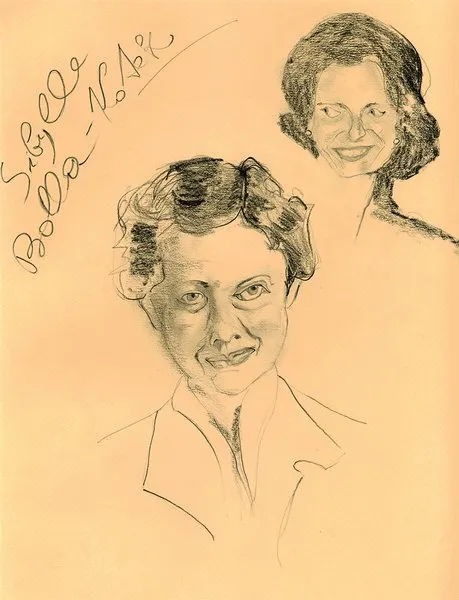 Sibylle
Bolla-Kotek